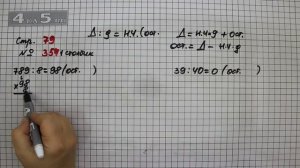 4 на 5
Стр. 79
№ 359 1 столбик
Д : д = н.ч. (ост.
Д = н.ч. · д + ост.
ост. = Д - н.ч. · д
789 : 8 = 98 (ост. )
98
×
39 : 40 = 0 (ост. )